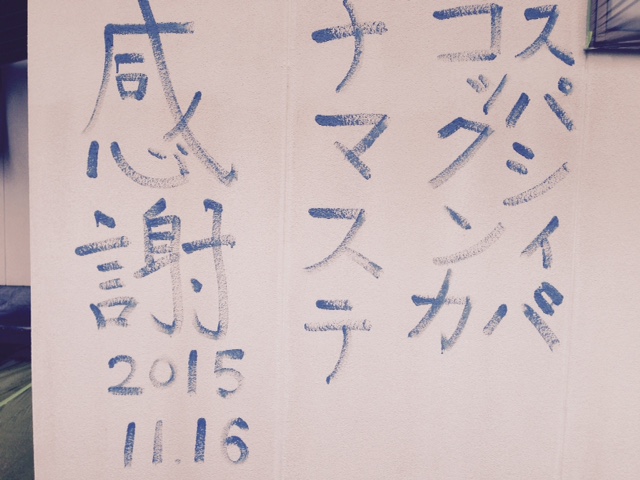 スパシィバ
コックンカ
ナマステ
感謝
2015
11.16